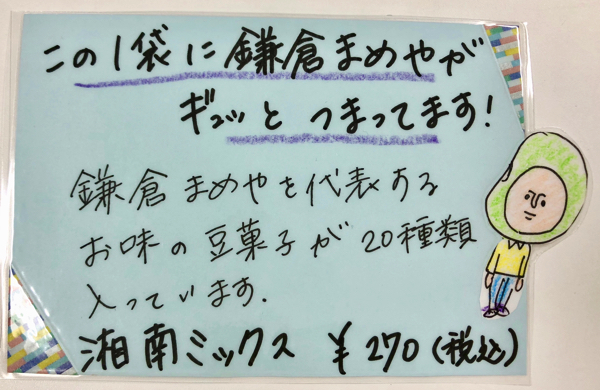 この1袋に鎌倉まめやが
ギュッとつまってます!
鎌倉まめやを代表する
お味の豆菓子が20種類
入っています.
湘南ミックス ¥270(税込)